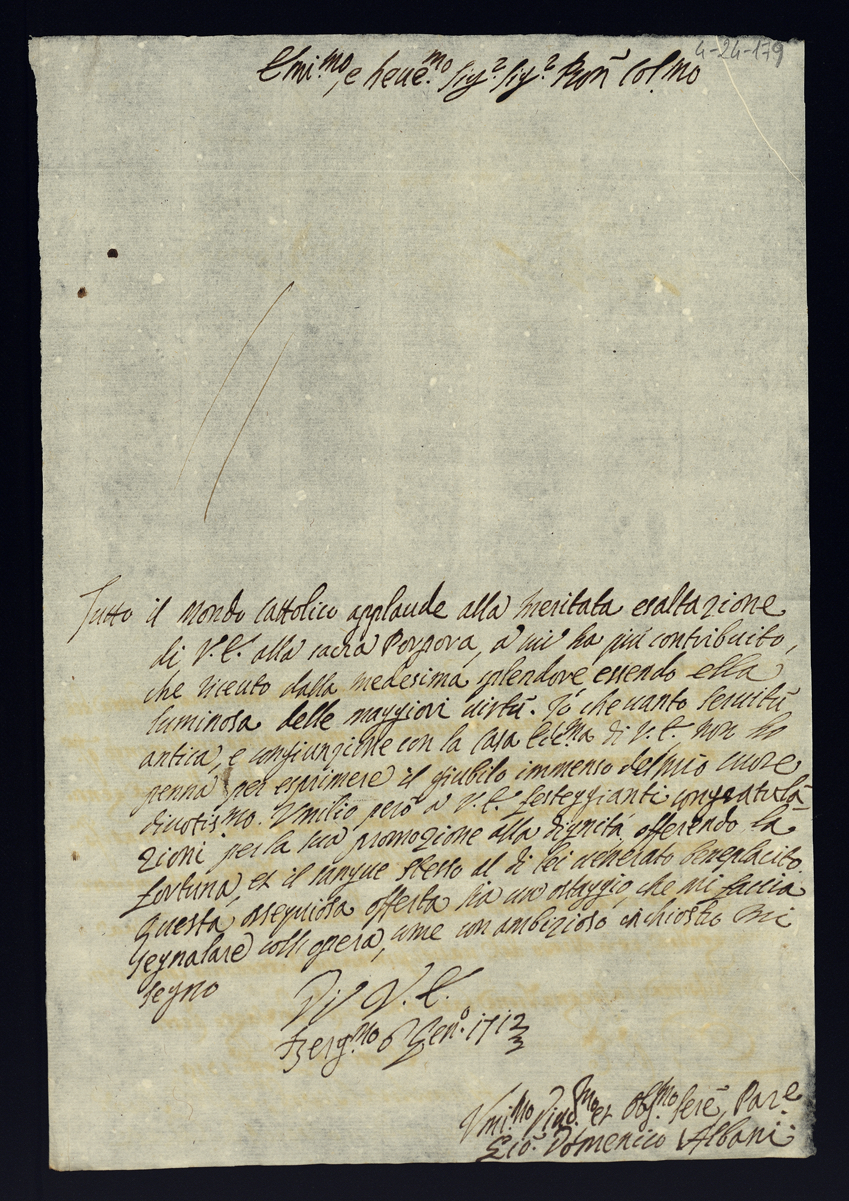 4-24-179
Emi.mo, e Reue.mo Sig.r Sig.r Pron Col.mo
Tutto il Mondo Cattolico applaude alla meritata esaltazione
di V.E. alla sacra Porpora, à cui hà più contribuito,
che riceuto dalla medesima splendore essendo ella
luminosa delle maggiori uirtù. Io che uanto seruitù
antica, e congiungione con la Casa Ecc.ma di V.E. non hò
penna per esprimere il giubilo immenso del mio cuore
diuotis.mo. Vmilio però à V.E. festeggianti congratula-
zioni per la sua promozione alla dignità, offerendo la
fortuna, et il sangue stesso al di lei uenerato beneplacito.
Questa ossequiosa offerta sia un'ostaggio, che mi faccia
segnalare coll'opera, come con ambizioso inchiostro mi
segno
Di V.E.
Berg.mo 6 Gen.o 1712
Vmi.mo Diuo.mo et Obl.mo Ser.e, Par.e
Gio. Domenico Albani